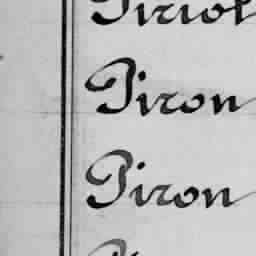 Piriol
Piron
Piron